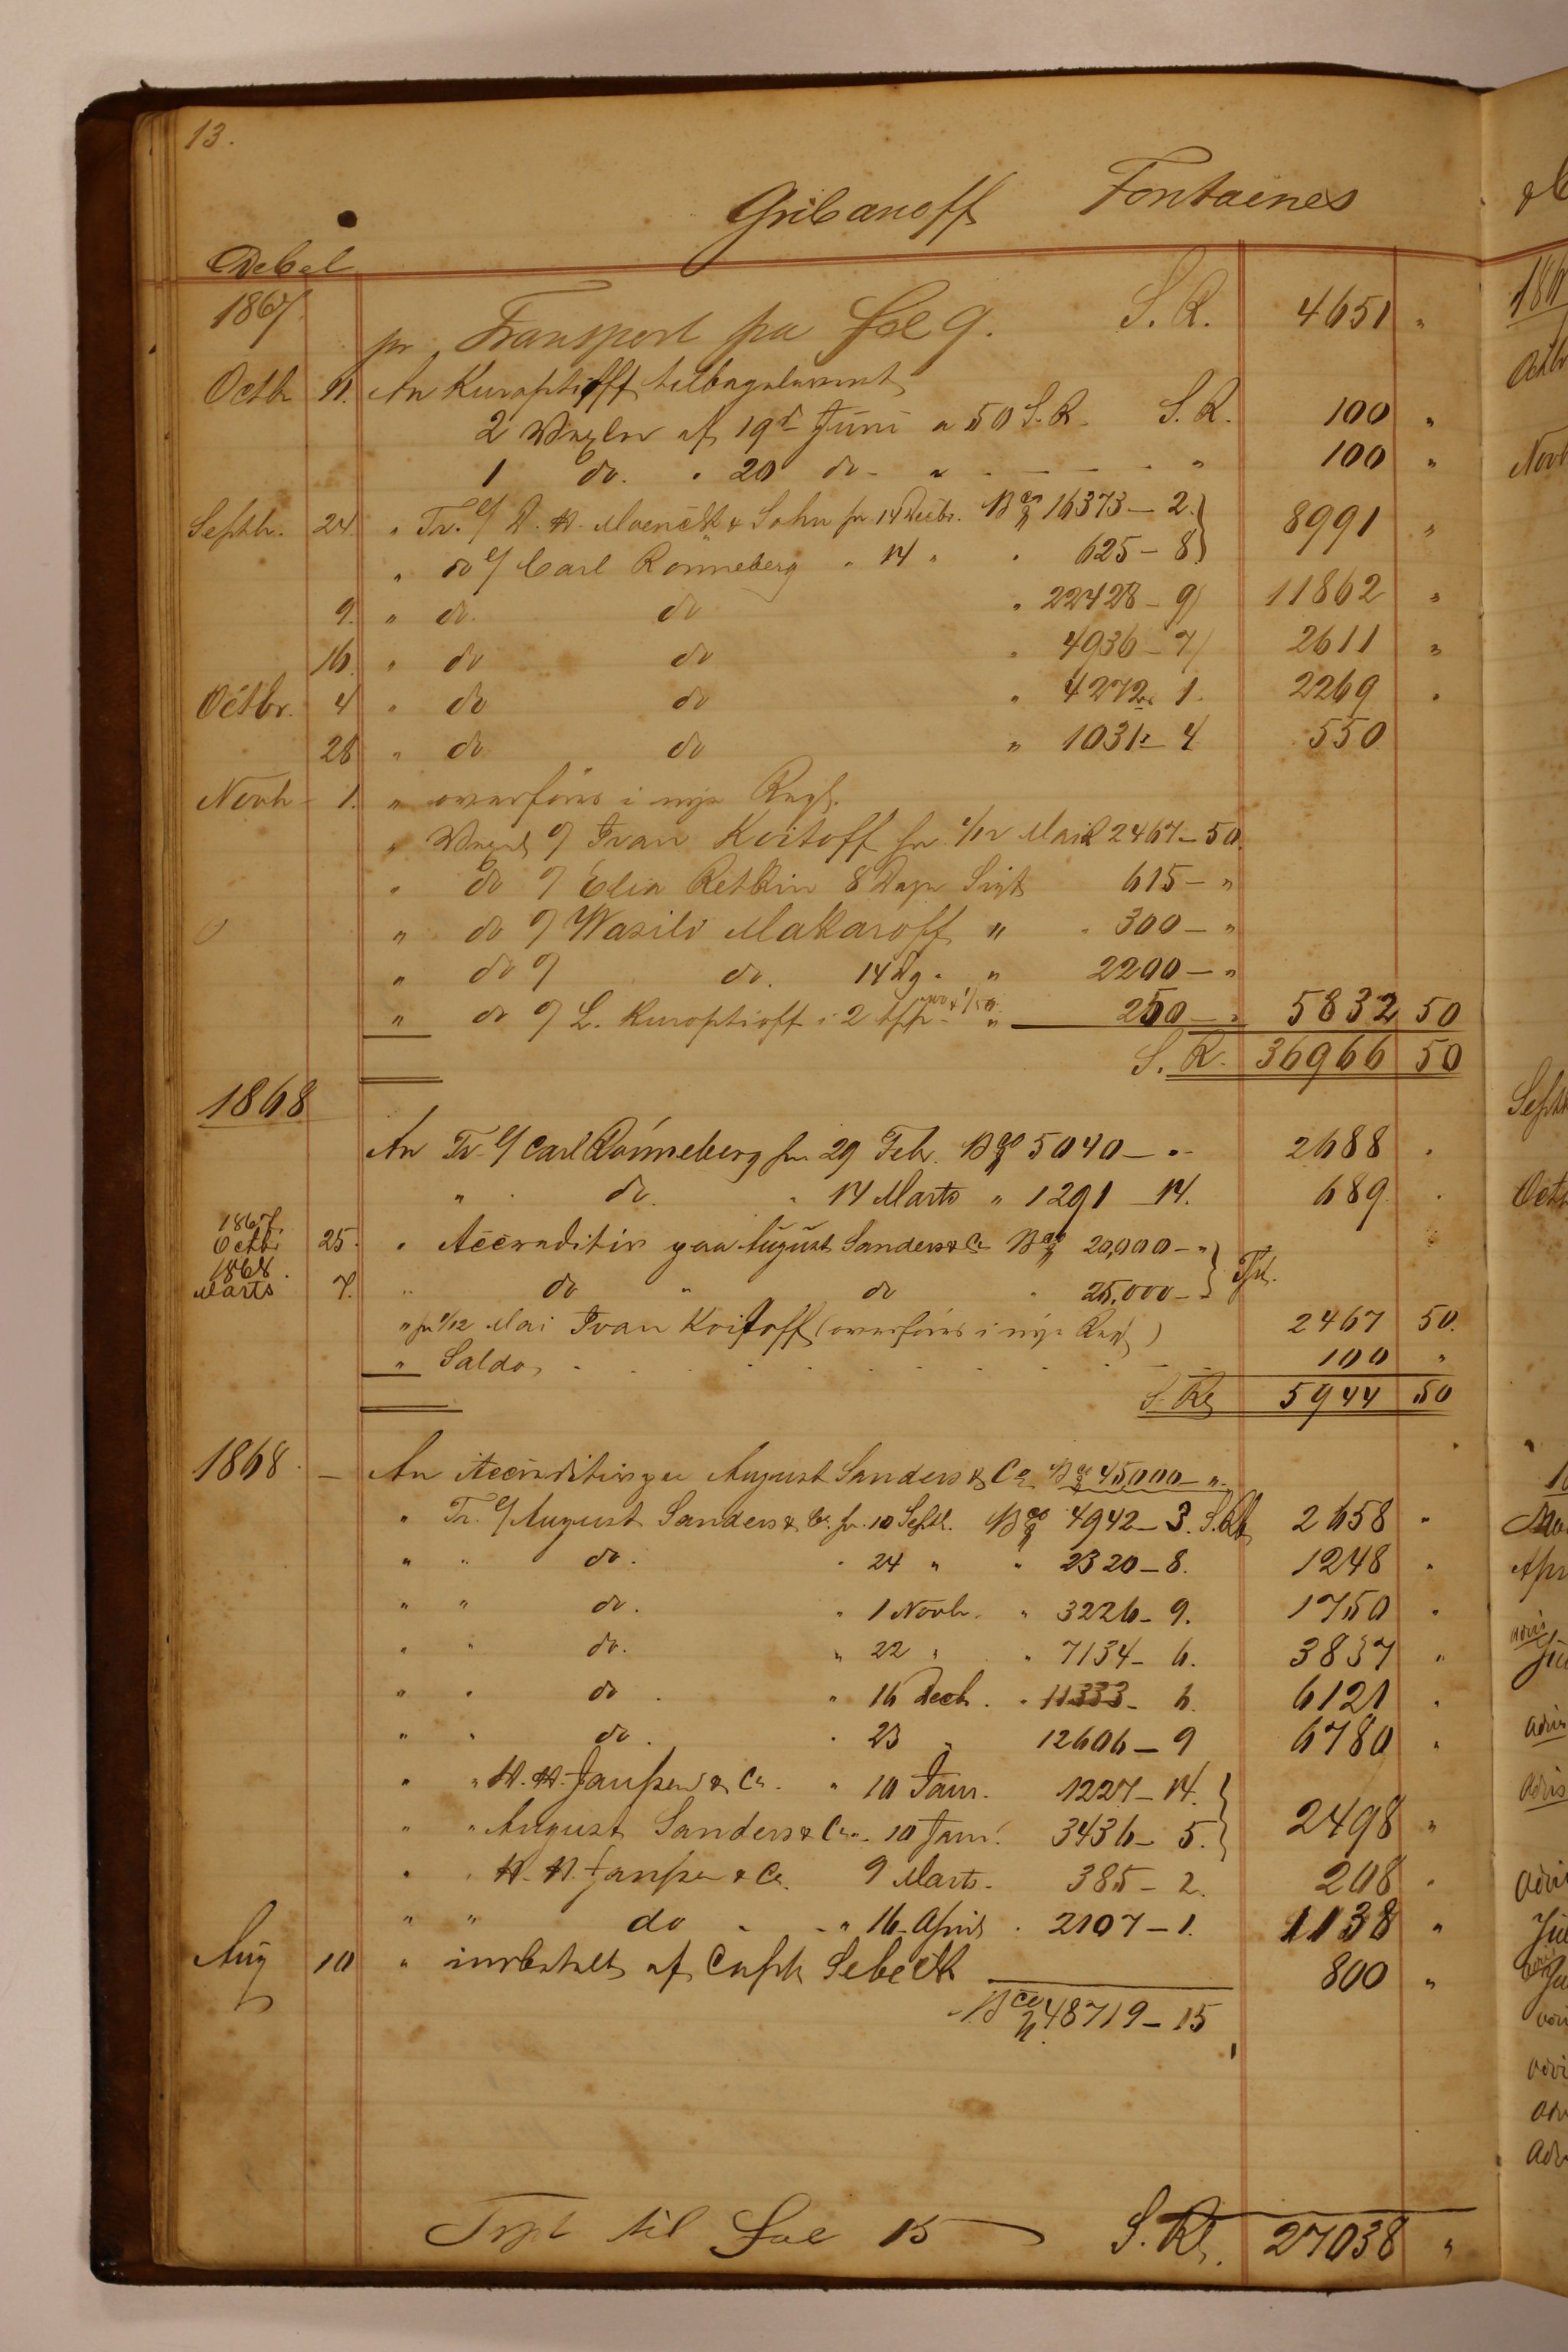 13.
Gribanoff Fontaines
Debet
1867 pr Transport fra Fol 9. S. R. 4651 "
Octb 11. An Kuroptioff tilbageleveret
2 Vexler af 19d Juni a 50 S. R. S. R. 100 "
1 do. " 20 do - " - - - - - " 100 "
Septbr. 24. " Tr. o/ & Sohn pr 14 Decbr. Bco 16373 - 2. 8991 "
" do o/ Carl Rönneberg " 14 " " 625 - 8
9. " do. do " 22428 - 9 11862 "
16. " do do " 4936 - 7 2611 "
Octbr. 4 " do do " 4272 - 1. 2269 "
28 " do do " 1031 - 4 550
Novb - 1. " overføres i nye Regn.
" Vexel o/ Ivan Koitoff pr 1/12 Mai 2467 - 50
" do o/ Elia Retkin 8 Dage Sigt 615 - "
" do o/ Wasili Makaroff " " 300 - "
" do o/ do. 14 Dg. " 2200 - "
" do o/ L. Kuroptioff i 2 " 250 - " 5832 50
S. R. 36966 50
1868
An Tr. o/ Carl Rönneberg pr 29 Febr. Bco 5040 - " - 2688 "
" do. " 14 Marts " 1291 - 14. 689 "
1867. Octbr 25. " Accreditiv paa August Sanders & Co Bco 20,000 - "
1868. Marts 7. " do " do " 25,000 - "
" pr 1/12 Mai Ivan Koitoff (overføres i nye Regn) 2467 50.
" Saldo . . . . . . . . 100 "
S. Rb 5944 50
1868. - An Accreditiv paa August Sanders & Co Bco 45,000 - "
" Tr. o/ August Sanders & Co. pr. 10 Septb. Bco 4942 - 3. S. Rb 2658 "
" " do. " 24 " " 2320 - 8. 1248 "
" " do. " 1 Novb. " 3226 - 9. 1750 "
" " do. " 22 " " 7134 - 6. 3837 "
" " do. " 16 Decb. " 11333 - 6. 6121 "
" " do. " 23 " 12606 - 9 6780 "
" " H. H. Janssen & Co. " 10 Janr. 1227 - 14.
" " August Sanders & Co. - 10 Janr. 3436 - 5. 2498 "
" " H. H. Janssen & Co. 9 Marts - 385 - 2. 208 "
" " do - - " 16 April " 2107 - 1. 1138 "
Aug 10 " indbetalt af Capt. Sebeck 800 "
Bco 48719 - 15
Trpt til Fol 15 S. Rb. 27038 "